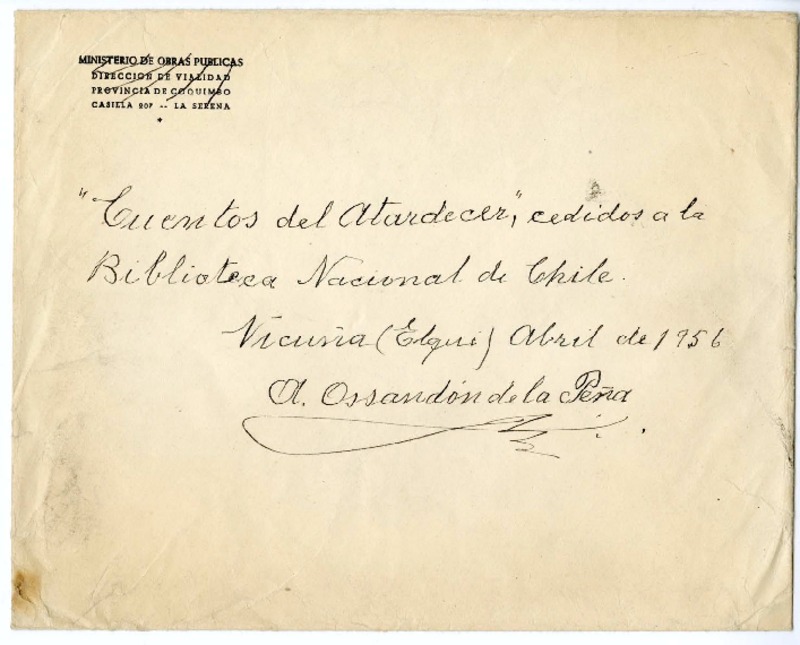 MINISTERIO DE OBRAS PUBLICAS
DIRECCION DE VIALIDAD
PROVINCIA DE COQUIMBO
CASILLA 207 -- LA SERENA
"Cuentos del Atardecer", cedidos a la
Biblioteca Nacional de Chile.
Vicuña (Elqui) Abril de 1956
A. Ossandón de la Peña